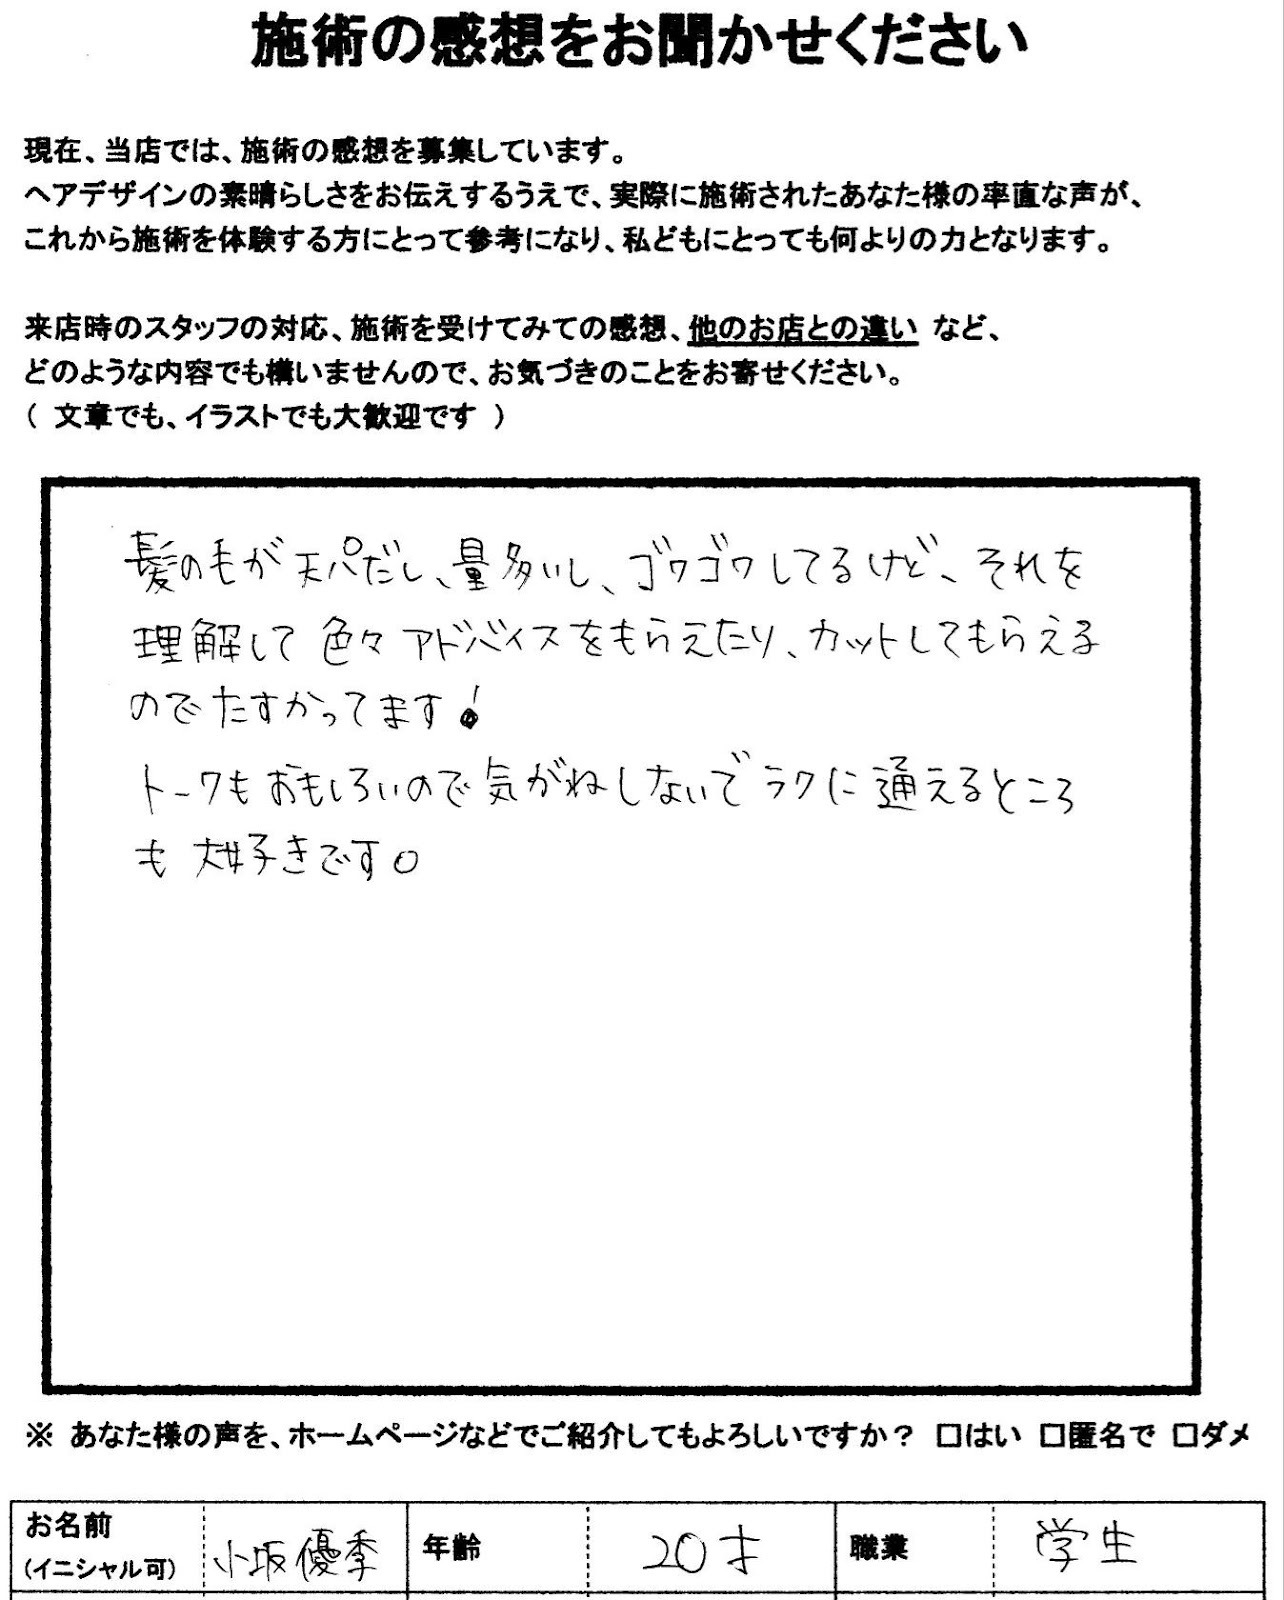 施術の感想をお聞かせください
現在、当店では、施術の感想を募集しています。
ヘアデザインの素晴らしさをお伝えするうえで、実際に施術されたあなた様の率直な声が、
これから施術を体験する方にとって参考になり、私どもにとっても何よりの力となります。
来店時のスタッフの対応、施術を受けてみての感想、他のお店との違い など、
どのような内容でも構いませんので、お気づきのことをお寄せください。
（ 文章でも、イラストでも大歓迎です ）
髪の毛が天パだし、量多いし、ゴワゴワしてるけど、それを
理解して色々アドバイスをもらえたり、カットしてもらえる
のでたすかってます!
トークもおもしろいので気がねしないでラクに通えるところ
も大好きです。
※ あなた様の声を、ホームページなどでご紹介してもよろしいですか？ □はい □匿名で □ダメ
お名前 小坂優季 年齢 20才 職業 学生
(イニシャル可)